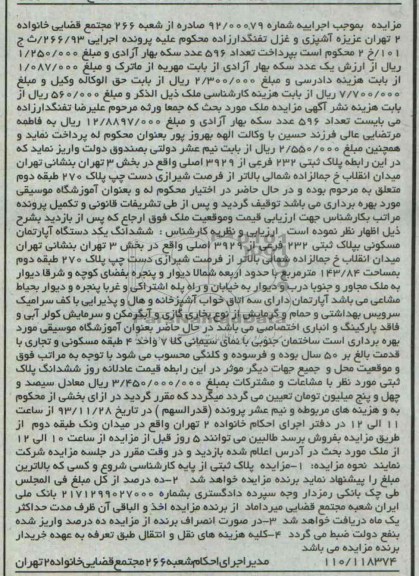 مزایده بموجب اجراییه شماره 92/000,79 صادره از شعبه 266 مجتمع قضایی خانواده
2 تهران عزیزه آشپزی و غزل تفنگدارزاده محکوم علیه پرونده اجرایی 266/93/ث ج
101/خ 2 محکوم است بپرداخت تعداد 596 عدد سکه بهار آزادی و مبلغ 1/250/000
ریال از ارزش یک عدد سکه بهار آزادی از بابت مهریه از ماترک و مبلغ 1/087/000
از بابت هزینه دادرسی و مبلغ 2/300/000 ریال از بابت حق الوکاله وکیل و مبلغ
7/700/000 ریال از بابت هزینه کارشناسی ملک ذیل الذکر و مبلغ 560/000 ریال از
بابت هزینه نشر آگهی مزایده ملک مورد بحث که جمعا ورثه مرحوم علیرضا تفنگدارزاده
می بایست تعداد 596 عدد سکه بهار آزادی و مبلغ 12/8897/000 ریال به فاطمه
مرتضایی عالی فرزند حسین با وکالت الهه بهروز پور بعنوان محکوم له پرداخت نماید و
همچنین مبلغ 2/550/000 ریال از بابت نیم عشر دولتی بصندوق دولت واریز نماید که
در این رابطه پلاک ثبتی 232 فرعی از 3929 اصلی واقع در بخش 3 تهران بنشانی تهران
میدان انقلاب خ جمالزاده شمالی بالاتر از فرصت شیرازی دست چپ پلاک 270 طبقه دوم
متعلق به مرحوم بوده و در حال حاضر در اختیار محکوم له و بعنوان آموزشگاه موسیقی
مورد بهره برداری می باشد توقیف گردید و پس از طی تشریفات قانونی و تکمیل پرونده
مراتب بکارشناس جهت ارزیابی قیمت وموقعیت ملک فوق ارجاع که پس از بازدید بشرح
ذیل اظهار نظر نموده است . ارزیابی و نظریه کارشناس : ششدانگ یک دستگاه آپارتمان
مسکونی بپلاک ثبتی 232 فرعی از 3929 اصلی واقع در بخش 3 تهران بنشانی تهران
میدان انقلاب خ جمالزاده شمالی بالاتر از فرصت شیرازی دست چپ پلاک 270 طبقه دوم
بمساحت 143/84 مترمربع با حدود اربعه شمالا دیوار و پنجره بفضای کوچه و شرقا دیوار
به ملک مجاور و جنوبا درب و دیوار به خیابان و راه پله اشتراکی و غربا پنجره و دیوار بحیاط
مشاعی می باشد آپارتمان دارای سه اتاق خواب آشپزخانه و هال و پذیرایی با کف سرامیک
سرویس بهداشتی و حمام و گرمایش از نوع بخاری گازی و آبگرمکن و سرمایش کولر آبی و
فاقد پارکینگ و انباری اختصاصی می باشد در حال حاضر بعنوان آموزشگاه موسیقی مورد
بهره برداری است ساختمان جنوبی با نمای سیمانی کلا 7 واحد 4 طبقه مسکونی و تجاری با
قدمت بالغ بر 50 سال بوده و فرسوده و کلنگی محسوب می شود با توجه به مراتب فوق
و موقعیت محل و جمیع جهات دیگر موثر در این رابطه قیمت عادلانه روز ششدانگ پلاک
ثبتی مورد نظر با مشاعات و مشترکات بمبلغ 3/450/000/000 ریال معادل سیصد و
چهل و پنج میلیون تومان تعیین می گردد میگردد که مقرر گردید در ازای بخشی از محکوم
به و هزینه های مربوطه و نیم عشر پرونده (قدرالسهم ) در تاریخ 93/11/28 از ساعت
11 الی 12 در دفتر اجرای احکام خانواده 2 تهران واقع در میدان ونک طبقه دوم از
طریق مزایده بفروش برسد طالبین می توانند 5 روز قبل از مزایده از ساعت 10 الی 12
از ملک مورد بحث در آدرس اعلام شده بازدید و در وقت مقرر در جلسه مزایده شرکت
نمایند نحوه مزایده: 1-مزایده پلاک ثبتی از پایه کارشناسی شروع و کسی که بالاترین
مبلغ را پیشنهاد نماید برنده مزایده خواهد شد 2-ده درصد از کل مبلغ فی المجلس
طی چک بانکی رمزدار وجه سپرده دادگستری بشماره 2171299027000 بانک ملی
ایران شعبه مجتمع قضایی میرداماد از برنده مزایده اخذ و الباقی آن ظرف مدت حداکثر
یک ماه دریافت خواهد شد 3-در صورت انصراف برنده از مزایده ده درصد واریز شده
بنفع دولت ضبط می گردد 4-کلیه هزینه های نقل و انتقال طبق تعرفه به عهده خریدار
برنده مزایده می باشد
110/118374 مدیر اجرای احکام شعبه 266 مجتمع قضایی خانواده 2 تهران